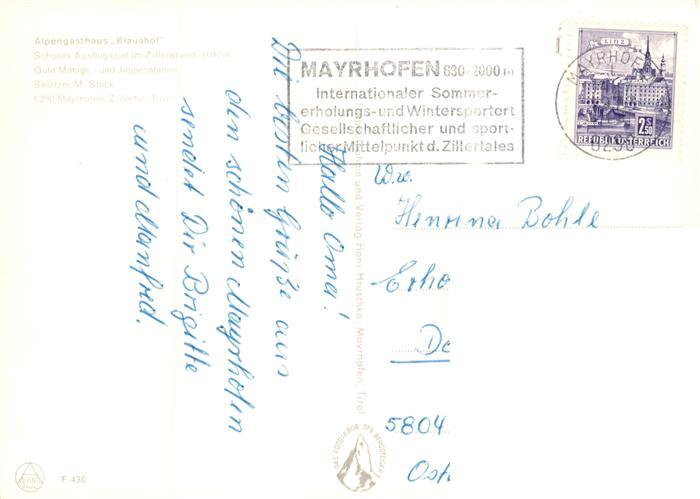 Alpengasthaus „Klaushof"
Schönes Ausflugsziel im Zillergrund, 1040 m
Gute Mittags - und Jausenstation
Besitzer M. Stock
6290 Mayrhofen, Zillertal, Tirol
MAYRHOFEN 630-2000 m
Internationaler Sommer-
erholungs-und Wintersportort
Gesellschaftlicher und sport-
licher Mittelpunkt d. Zillertales
LINZ
2.50 S
REPUBLIK ÖSTERREICH
MAYRHOFEN
6290
Hallo Oma!
Die besten Grüße aus
den schönen Mayrhofen
sendet Dir Brigitte
und Manfred.
und Verlag Hans Hruschka, Mayrhofen, Tirol
Ww.
Henrina Bohle
Erho
5804
Ost
DAS FOTOLABOR DER BERGSTEIGER
F 430